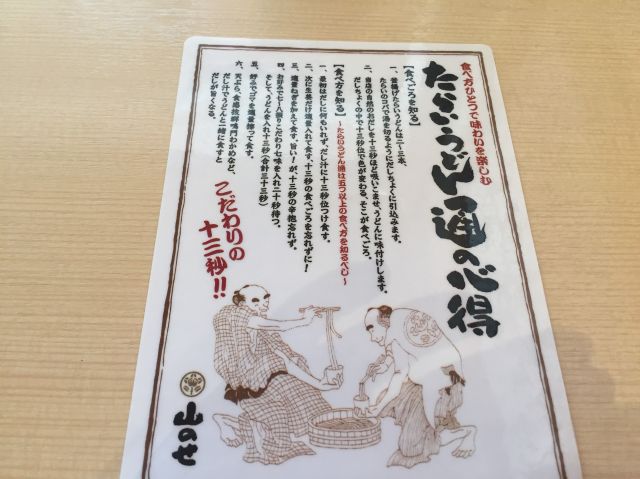 食べ方ひとつで味わいを楽しむ
たらいうどん通の心得
【食べごろを知る】
一、釜揚げたらいうどんは二～三本、
たらいのコバで湯を切るようにだしちょくに引込みます。
二、当店の自然のおだしを十三秒ほど吸いこませ、うどんに味付けします。
だしちょくの中で十三秒位で色が変わる。そこが食べごろ。
【食べ方を知る】～たらいうどん通は五つ以上の食べ方を知るべし～
一、最初はだしに何もいれず、だし汁に十三秒位つけ食す。
二、次に生姜だけ適量入れて食す。十三秒の食べごろを忘れずに！
三、適量ねぎを加えて食す。旨い！が、十三秒の辛抱忘れず。
四、お好みで七～八振りこだわり七味を入れ二十秒待つ。
そして、うどんを入れ十三秒（合計三十三秒）
五、好みでゴマを適量擦って食す。
六、天ぷら、食感抜群鳴門わかめなど、
だし汁でうどんと一緒に食すと
だしが旨くなる。
こだわりの
十三秒!!
山のせ